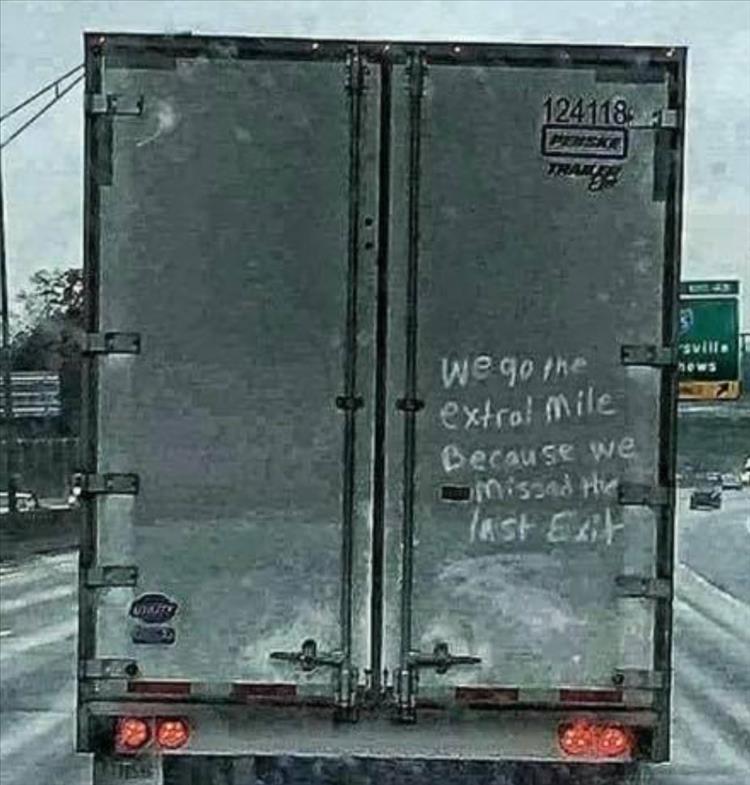 124118
PENSKE
TRAILER
We go the
extral Mile
Because we
Missed the
last Exit
UTILITY
sville
news